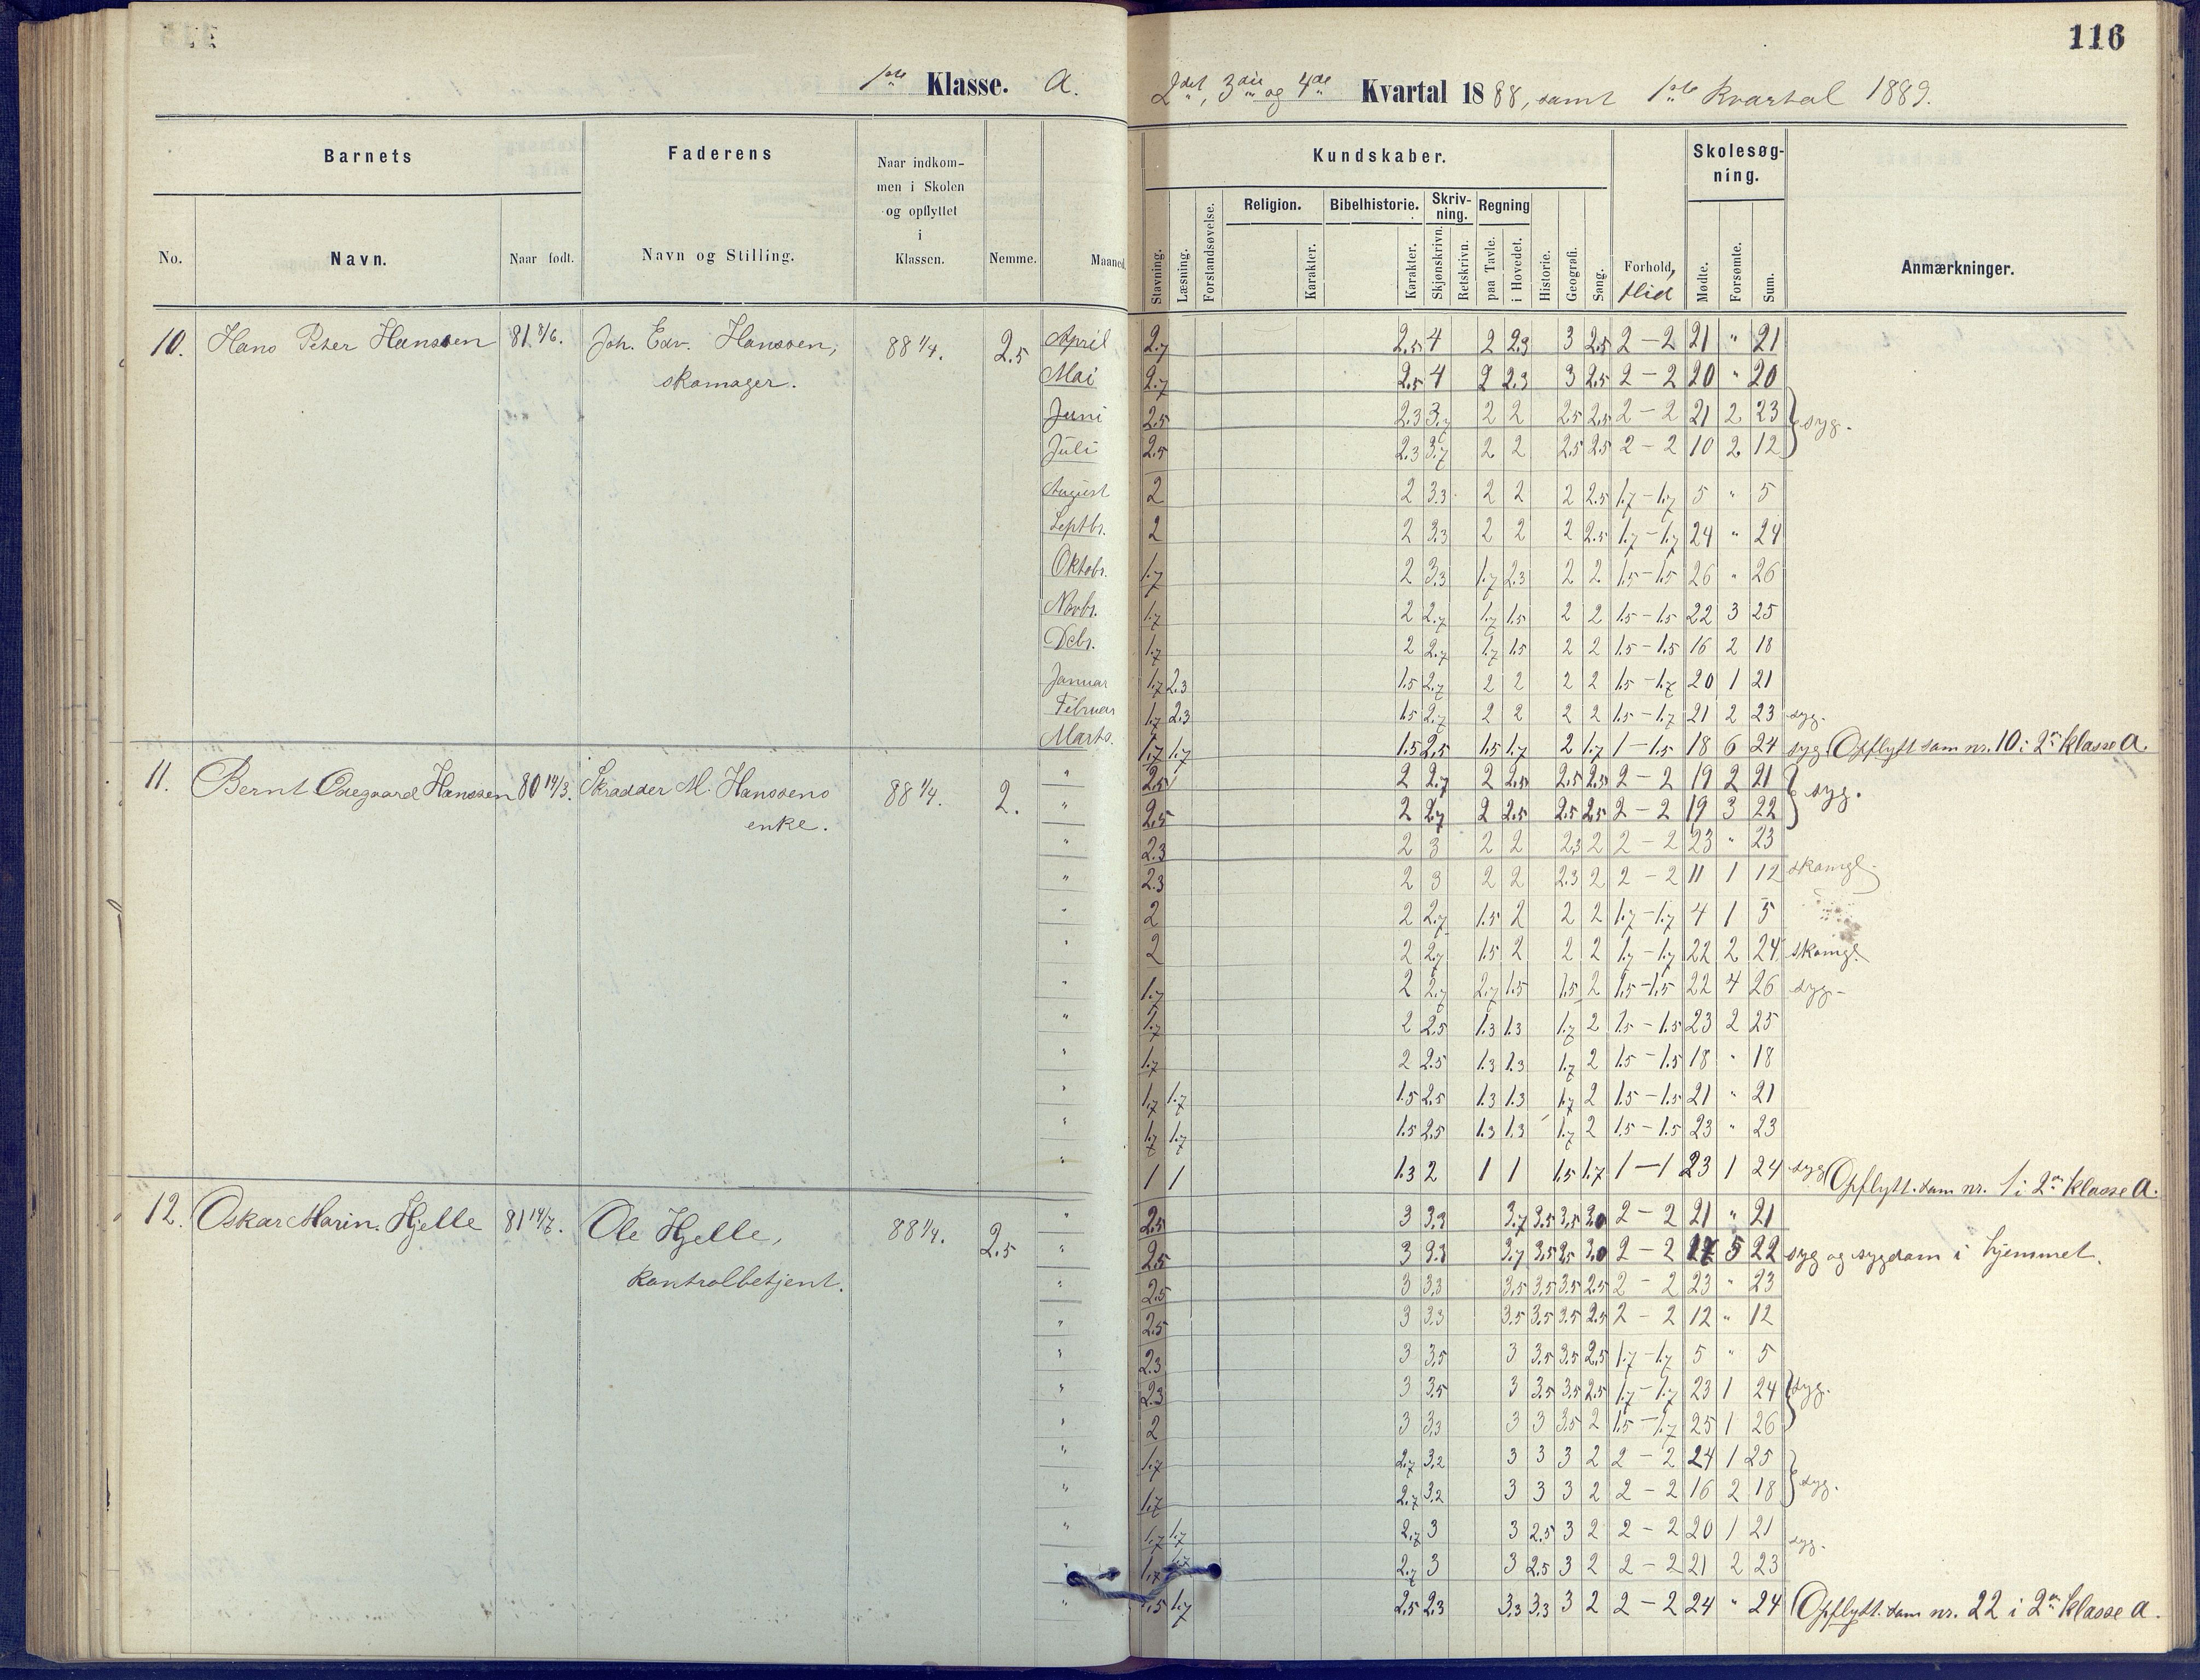 116
1ste Klasse. A.
2det, 3die og 4de Kvartal 1888, samt 1ste Kvartal 1889.
Barnets
Faderens
Naar indkom-
men i Skolen
og opflyttet
i
Klassen.
Kundskaber.
Skolesøg-
ning.
No.
Navn.
Naar født.
Navn og Stilling.
Nemme.
Maaned.
Stavning.
Læsning.
Forstandsøvelse.
Religion.
Karakter.
Bibelhistorie.
Karakter.
Skriv-
ning.
Skjønskrivn.
Retskrivn.
Regning
paa Tavle.
i Hovedet.
Historie.
Geografi.
Sang.
Forhold,
flid
Mødte.
Forsømte.
Sum.
Anmærkninger.
10. Hans Peter Hanssen 81 8/6. Joh. Edv. Hanssen, 88 1/4. 2.5 April 2.7 2.5 4 2 2.3 3 2.5 2 - 2 21 " 21
skomager. Mai 2.7 2.5 4 2 2.3 3 2.5 2 - 2 20 " 20
Juni 2.5 2.3 3.7 2 2 2.5 2.5 2 - 2 21 2 23 syg.
Juli 2.5 2.3 3.7 2 2 2.5 2.5 2 - 2 10 2 12
August 2 2 3.3 2 2 2 2.5 1.7 - 1.7 5 " 5
Septbr. 2 2 3.3 2 2 2 2.5 1.7 - 1.7 24 " 24
Oktobr. 1.7 2 3.3 1.7 2.3 2 2 1.5 - 1.5 26 " 26
Novbr. 1.7 2 2.7 1.7 1.5 2 2 1.5 - 1.5 22 3 25
Debr. 1.7 2 2.7 1.7 1.5 2 2 1.5 - 1.5 16 2 18
Januar 1.7 2.3 1.5 2.7 2 2 2 2 1.5 - 1.7 20 1 21
Februar 1.7 2.3 1.5 2.7 2 2 2 2 1.5 - 1.7 21 2 23 syg.
Marts. 1.7 1.7 1.5 2.5 1.5 1.7 2 1.7 1 - 1.5 18 6 24 syg. Opflytt som nr. 10 i 2en klasse A.
11. Bernt Odegaard Hanssen 80 14/3. Skrædder M. Hanssens 88 1/4. 2. " 2.5 2 2.7 2 2.5 2.5 2.5 2 - 2 19 2 21 syg.
enke. " 2.5 2 2.7 2 2.5 2.5 2.5 2 - 2 19 3 22
" 2.3 2 3 2 2 2.3 2 2 - 2 23 " 23
" 2.3 2 3 2 2 2.3 2 2 - 2 11 1 12 skomgl.
" 2 2 2.7 1.5 2 2 2 1.7 - 1.7 4 1 5
" 2 2 2.7 1.5 2 2 2 1.7 - 1.7 22 2 24 skomgl.
" 1.7 2 2.7 2.7 1.5 1.5 2 1.5 - 1.5 22 4 26 syg.
" 1.7 2 2.5 1.3 1.3 1.7 2 1.5 - 1.5 23 2 25
" 1.7 2 2.5 1.3 1.3 1.7 2 1.5 - 1.5 18 " 18
" 1.7 1.7 1.5 2.5 1.3 1.3 1.7 2 1.5 - 1.5 21 " 21
" 1.7 1.7 1.5 2.5 1.3 1.3 1.7 2 1.5 - 1.5 23 " 23
" 1 1 1.3 2 1 1 1.5 1.7 1 - 1 23 1 24 syg Opflytt. som nr. 1 i 2en klasse A.
12. Oskar Marin. Hjelle 81 14/7. Ole Hjelle, 88 1/4. 2.5 " 2.5 3 3.3 3.7 3.5 3.5 3.0 2 - 2 21 " 21
" 2.5 3 3.3 3.7 3.5 3.0 2 - 2 17 5 22 syg og sygdom i hjemmet.
kontrolbetjent. " 2.5 3 3.3 3.5 3.5 3.5 2.5 2 - 2 23 " 23
" 2.5 3 3.3 3.5 3.5 3.5 2.5 2 - 2 12 " 12
" 2.3 3 3.5 3 3.5 3.5 2.5 1.7 - 1.7 5 " 5
" 2.3 3 3.5 3 3.5 3.5 2.5 1.7 - 1.7 23 1 24 syg.
" 2 3 3.3 3 3 3.5 2 1.5 - 1.7 25 1 26
" 1.7 2.7 3.2 3 3 3 2 2 - 2 24 1 25
" 1.7 2.7 3.2 3 3 3 2 2 - 2 16 2 18 syg.
" 1.7 1.7 2.7 3 3 2.5 3 2 2 - 2 20 1 21
" 1.7 2.7 3 3 2.5 3 2 2 - 2 21 2 23 syg.
" 1.7 2.5 2.3 3.3 3.3 3 2 2 - 2 24 " 24 Opflytt. som nr. 22 i 2en klasse A.